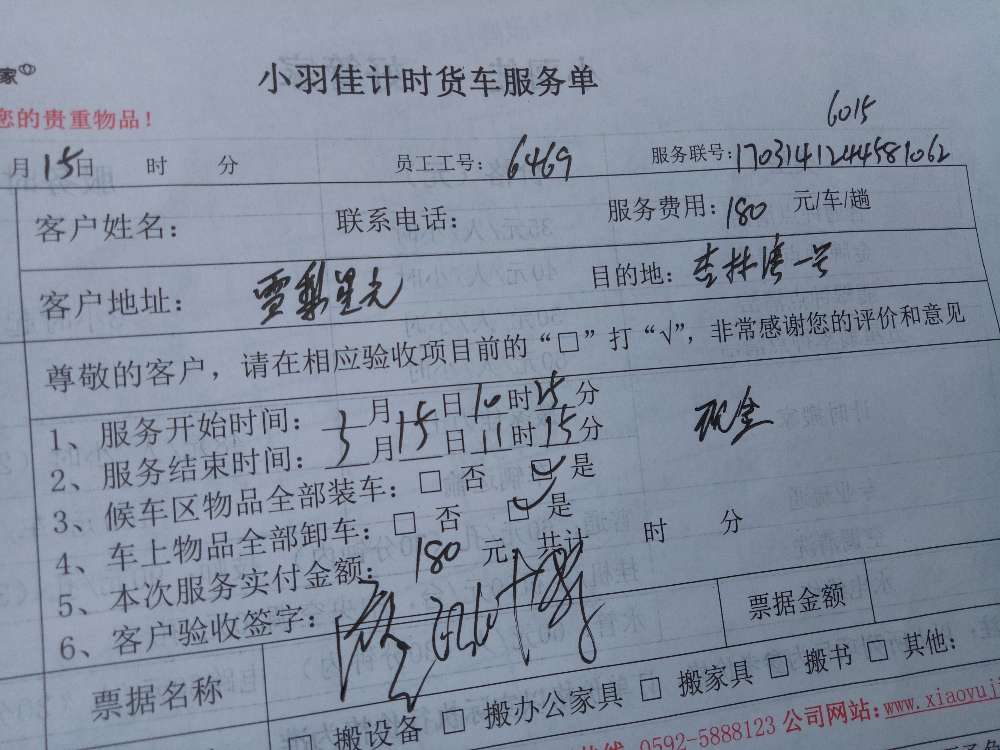 家
小羽佳计时货车服务单
您的贵重物品!
6015
月15日 时 分 员工工号: 6469 服务联号:1703141244581062
客户姓名: 联系电话: 服务费用:180 元/车/趟
客户地址: 雪梨星光 目的地: 杏林湾一号
尊敬的客户，请在相应验收项目前的“□”打“√”，非常感谢您的评价和意见
1、服务开始时间: 3月15日10时25分
2、服务结束时间: 3月15日11时15分
现金
3、候车区物品全部装车: □ 否 ☑ 是
4、车上物品全部卸车: □ 否 ☑ 是
5、本次服务实付金额: 180 元 共计 时 分
6、客户验收签字:
票据名称 票据金额
□ 搬设备 □ 搬办公家具 □ 搬家具 □ 搬书 □ 其他:
热线 0592-5888123 公司网站:www.xiaoyuji